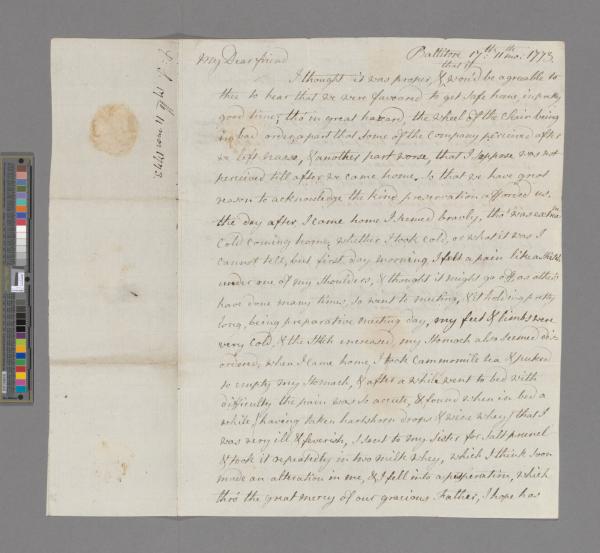 My Dear friend
Ballitore 17th.. 11th.. mo. 1773.
that it
I thought it was proper, & wou'd be agreable to
thee to hear that we were favoured to get safe home in pretty
good time; tho in great hazard, the wheel of the Chair being
in bad order, a part that some of the company perceived after
we left & another part worse, that I suppose was not
perceived till after we came home, so that we have great
reason to acknowledge the kind preservation afforded us.
the day after I came home I seemed bravely, tho' was
cold coming home; whether I took cold, or what it was I
cannot tell, but first day morning, I felt a pain like a stitch
under one of my shoulders, & thought it might go off, as others
have done many times, so went to meeting, & it holding pretty
long, being preparative meeting day, my feet & limbs were
very cold, & the stitch increased, my stomach also seemed dis-
ordered; when I came home, I took cammomile tea & puked
to empty my stomach, & after a while went to bed with
difficulty the pain was so accute, & found when in bed a
while, (having taken hartshorn drops & wine whey) that I
was very ill & feverish, I sent to my Sister for salt prunel
& took it repeatedly in two milk whey, which I think soon
made an alteration in me, & I fell into a perspiration, which
thro' the great mercy of our gracious Father, I hope has
17th 11 mo: 1773.